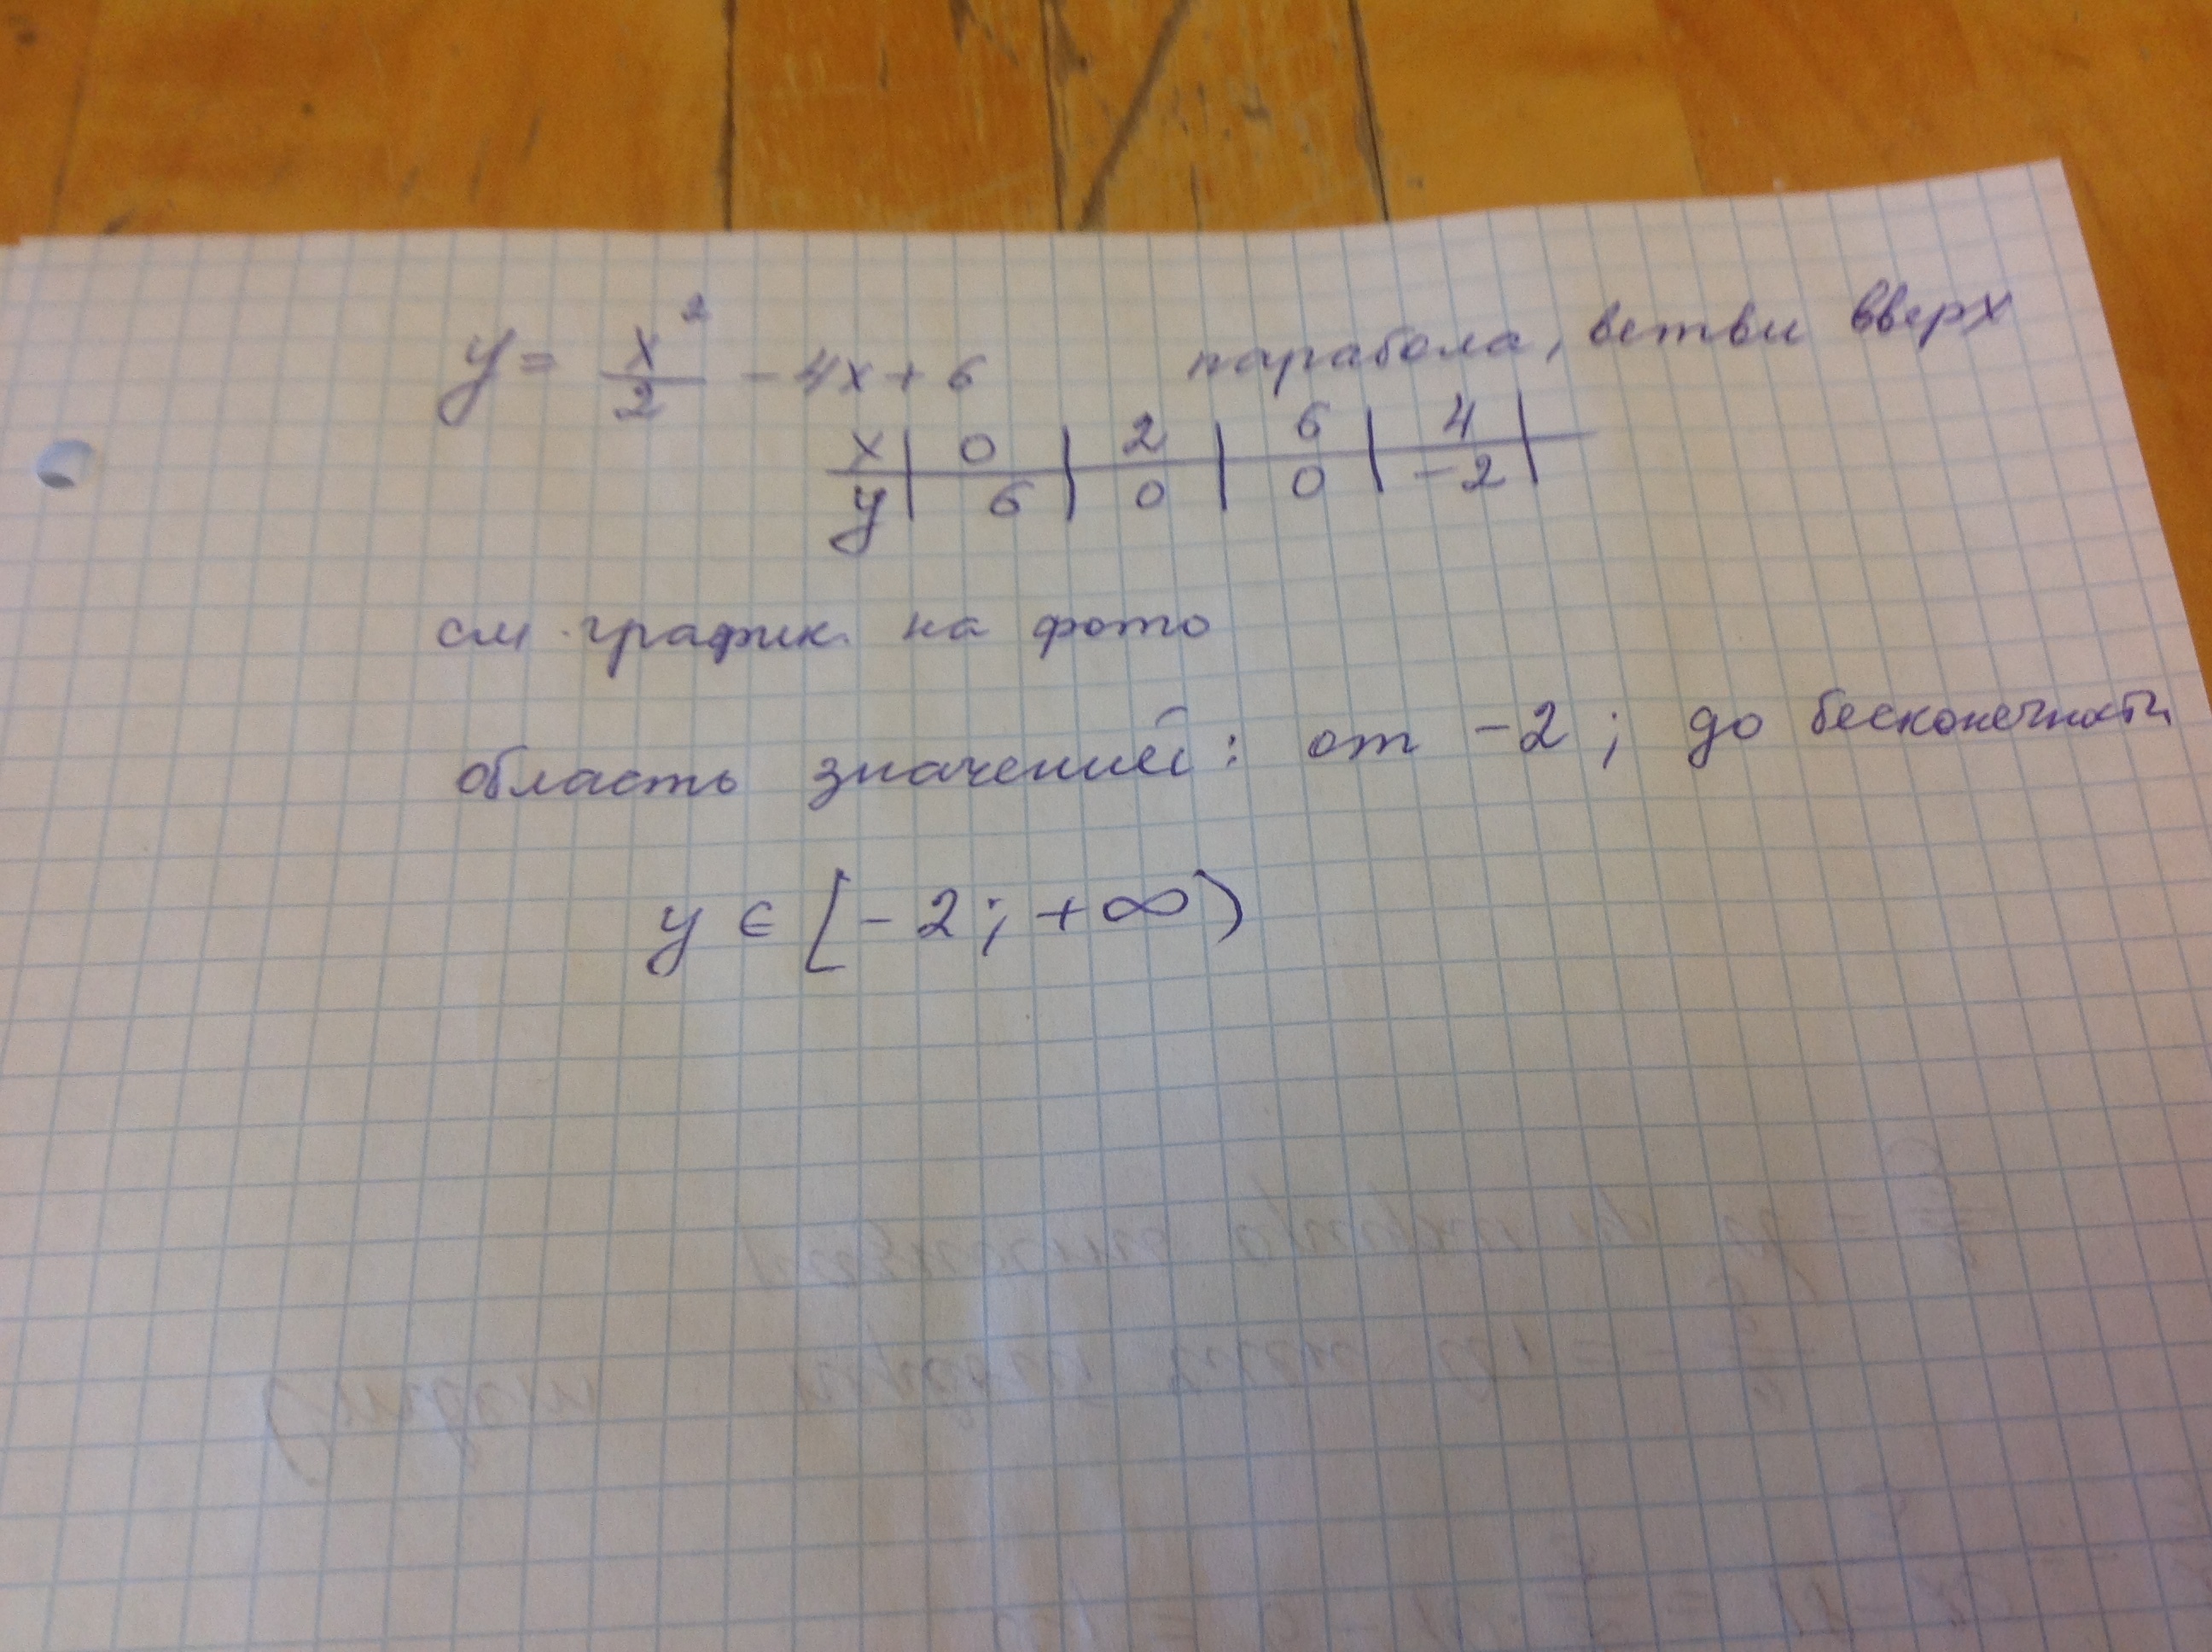 y = x²/2 - 4x + 6 парабола, ветви вверх
x | 0 | 2 | 6 | 4 |
y | 6 | 0 | 0 | -2 |
см. график на фото
область значений: от -2; до бесконечности
y ∈ [-2; +∞)